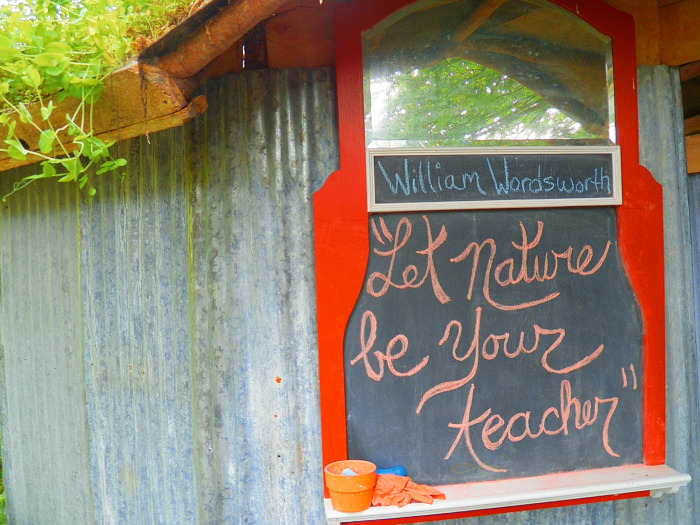 William Wordsworth
"Let Nature
be Your
teacher"